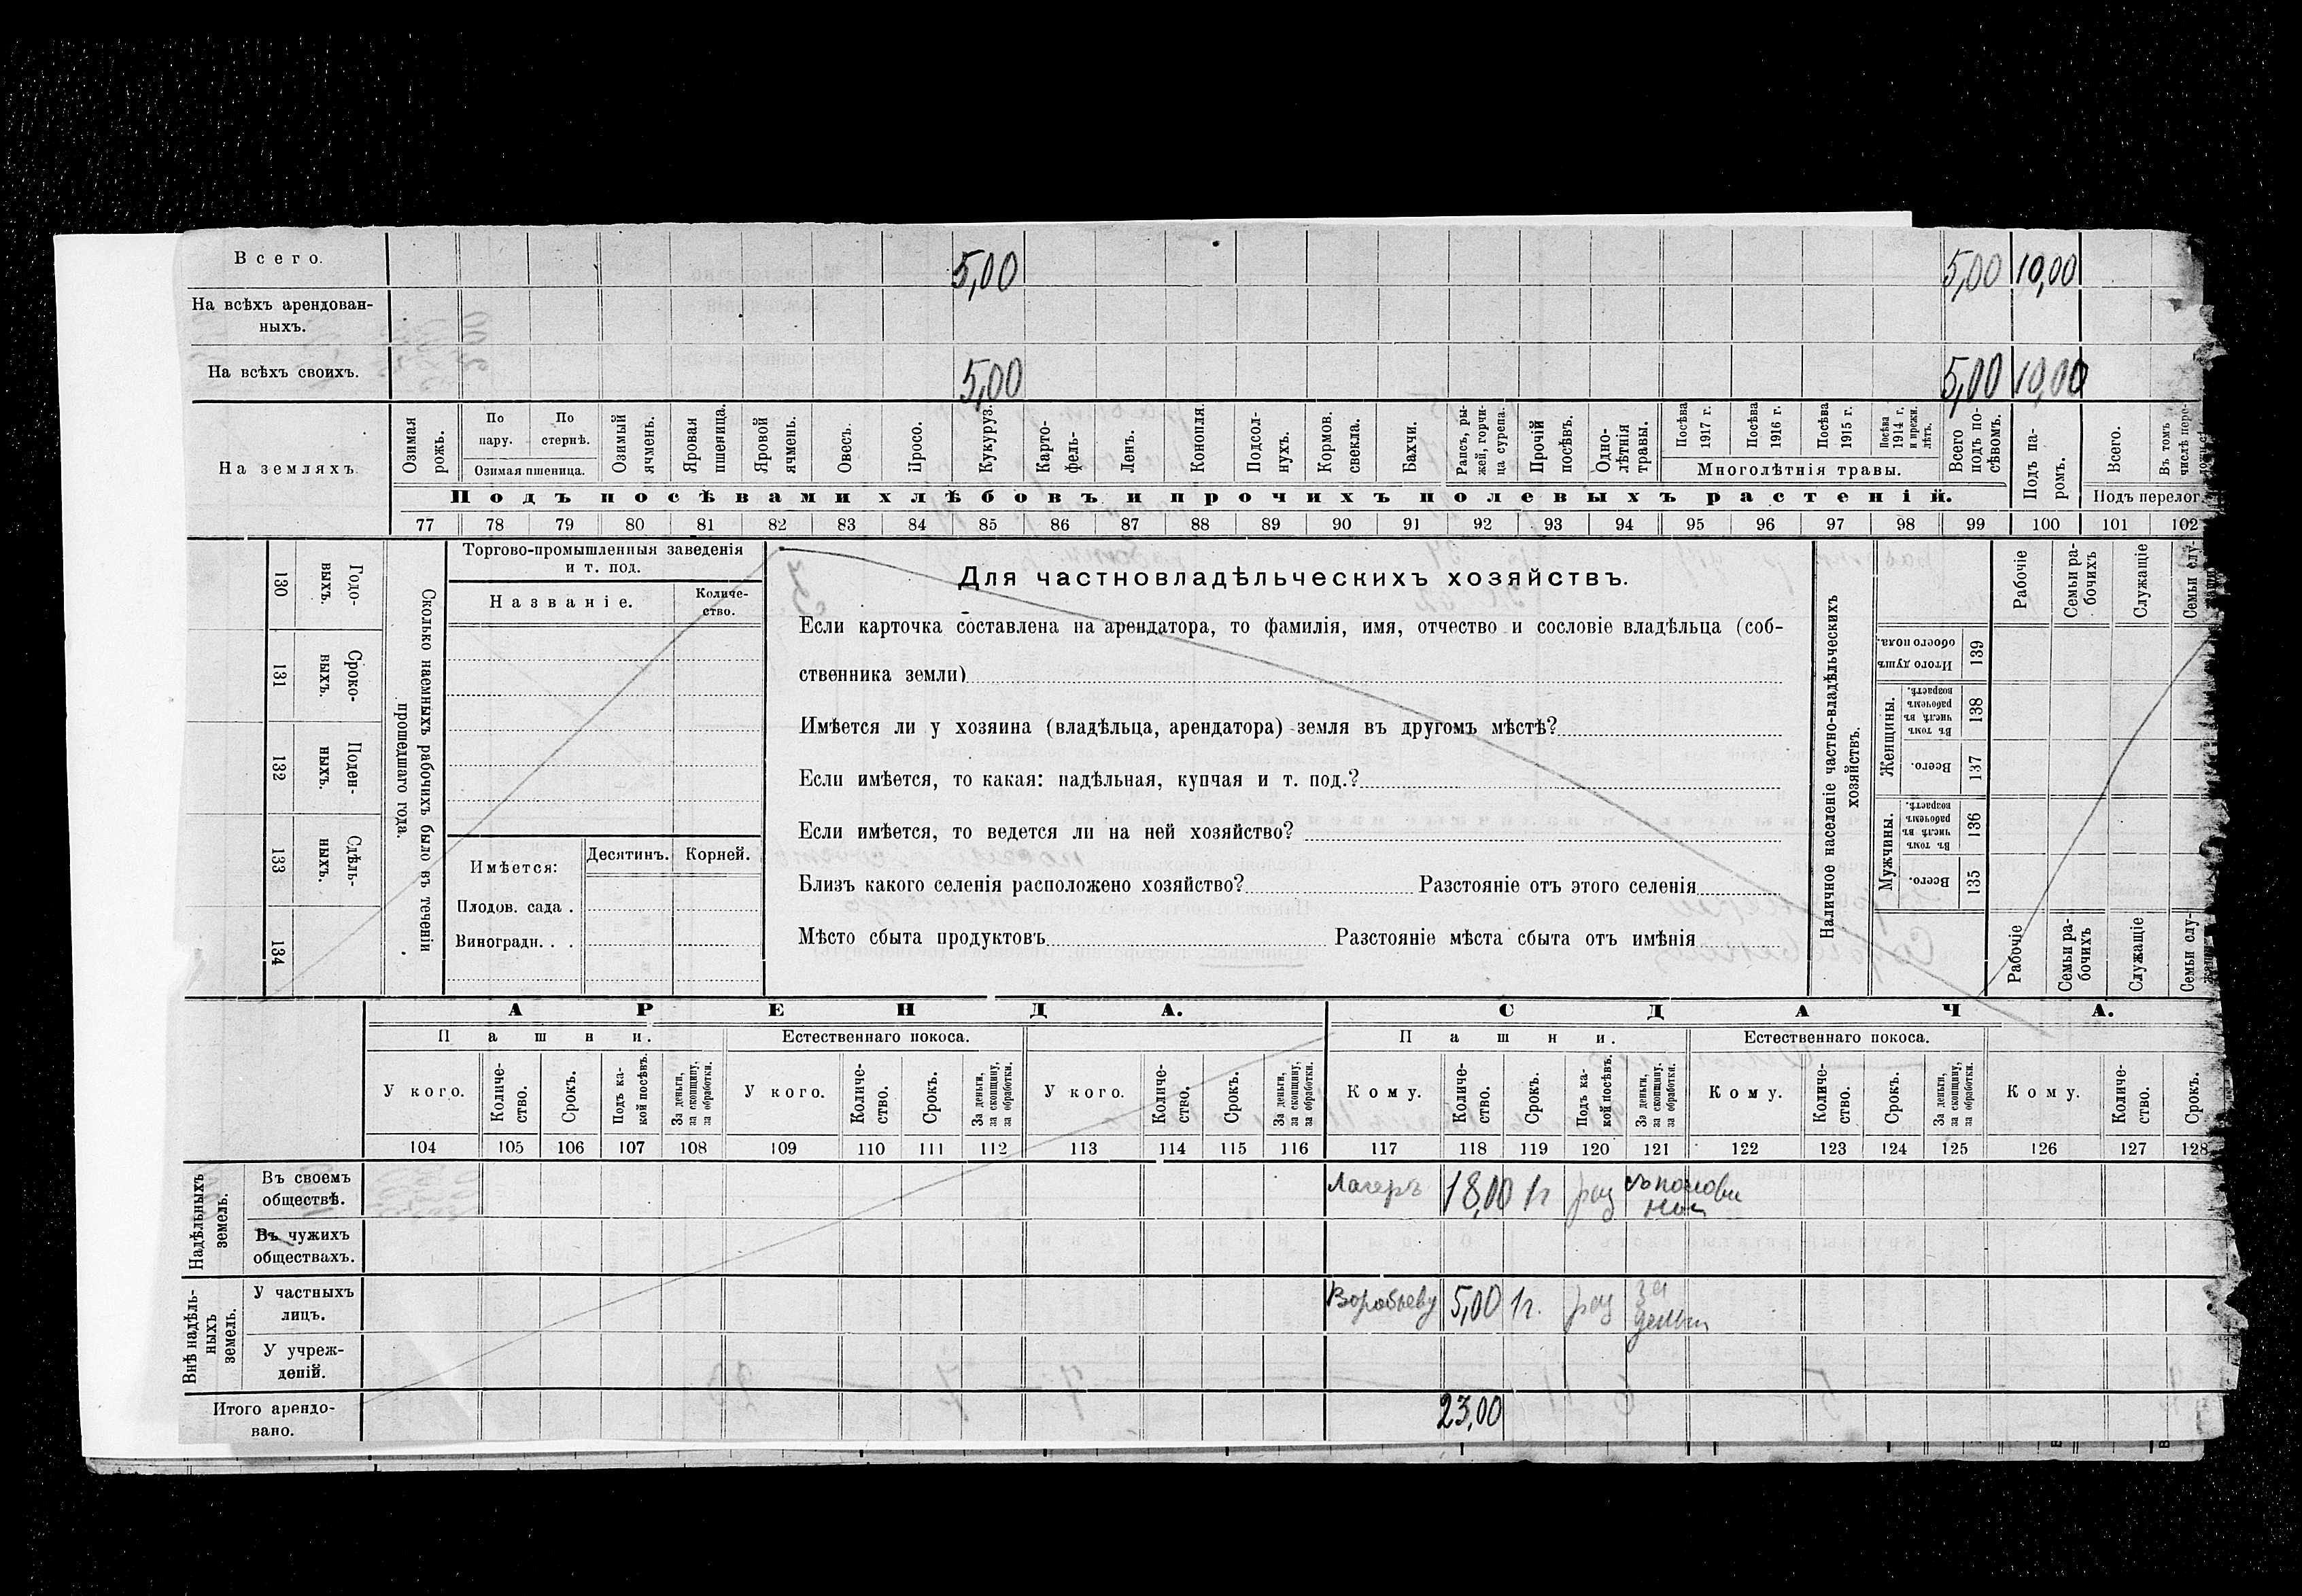 Всего.
5,00
5,00
10,00
На всѣхъ арендован-
ныхъ.
На всѣхъ своихъ.
5,00
5,00
10,00
На земляхъ.
Озимая
рожь.
По
пару.
По
стернѣ.
Озимая пшеница.
Озимый
ячмень.
Яровая
пшеница.
Яровой
ячмень.
Овесъ.
Просо.
Кукуруз.
Карто-
фель-
Ленъ.
Конопля.
Подсол-
нухъ.
Кормов.
свекла.
Бахчи.
Рапсъ, ры-
жей, горчи-
ца сурепа.
Прочій
посѣвъ.
Одно-
лѣтнія
травы.
Посѣва
1917 г.
Посѣва
1916 г.
Посѣва
1915 г.
Посѣва
1914 г.
и прежн.
лѣтъ.
Многолѣтнія травы.
Всего
подъ по-
сѣвомъ.
Подъ па-
ромъ.
Всего.
Въ томъ
числѣ пере-
Подъ перелог.
Подъ посѣвами хлѣбовъ и прочихъ полевыхъ растеній.
77 78 79 80 81 82 83 84 85 86 87 88 89 90 91 92 93 94 95 96 97 98 99 100 101 102
Годо-
ныхъ.
130
Сроко-
ныхъ.
131
Поден-
ныхъ.
132
Сдѣль-
ныхъ.
133
134
Сколько наемныхъ рабочихъ было въ теченіи
прошедшаго года.
Торгово-промышленныя заведенія
и т. под.
Названіе.
Количе-
ство.
Имѣется:
Десятинъ.
Корней.
Плодов. сада .
Виноградн. . .
Для частновладѣльческихъ хозяйствъ.
Если карточка составлена на арендатора, то фамилія, имя, отчество и сословіе владѣльца (соб-
ственника земли)
Имѣется ли у хозяина (владѣльца, арендатора) земля въ другомъ мѣстѣ?
Если имѣется, то какая: надѣльная, купчая и т. под.?
Если имѣется, то ведется ли на ней хозяйство?
Близъ какого селенія расположено хозяйство? Разстояніе отъ этого селенія
Мѣсто сбыта продуктовъ Разстояніе мѣста сбыта отъ имѣнія
Наличное населеніе частно-владѣльческихъ
хозяйствъ.
Рабочіе
Семьи ра-
бочихъ
Служащіе
Семьи слу-
Итого душъ
обоего пола.
139
Женщины.
Въ томъ
числѣ въ
рабочемъ
возрастѣ.
138
Всего.
137
Мужчины.
Въ томъ
числѣ въ
рабочемъ
возрастѣ.
136
Всего.
135
Рабочіе
Семьи ра-
бочихъ
Служащіе
Семьи слу-
АРЕНДА.
СДАЧА.
Пашни.
Естественнаго покоса.
Пашни.
Естественнаго покоса.
У кого.
Количе-
ство.
Срокъ.
Подъ ка-
кой посѣвъ.
За деньги,
за скопщину,
за обработки.
У кого.
Количе-
ство.
Срокъ.
За деньги,
за скопщину,
за обработки.
У кого.
Количе-
ство.
Срокъ.
За деньги,
за скопщину,
за обработки.
Кому.
Количе-
ство.
Срокъ.
Подъ ка-
кой посѣвъ.
За деньги,
за скопщину,
за обработки.
Кому.
Количе-
ство.
Срокъ.
За деньги,
за скопщину,
за обработки.
Кому.
Количе-
ство.
Срокъ.
104 105 106 107 108 109 110 111 112 113 114 115 116 117 118 119 120 121 122 123 124 125 126 127 128
Надѣльныхъ
земель.
Въ своемъ
обществѣ.
Лагеръ
18,00
1 г
Въ чужихъ
обществахъ.
Внѣ надѣль-
ныхъ
земель.
У частныхъ
лицъ.
Воробьеву
5,00
1 г.
за
деньги
У учреж-
деній.
Итого арендо-
вано.
23,00